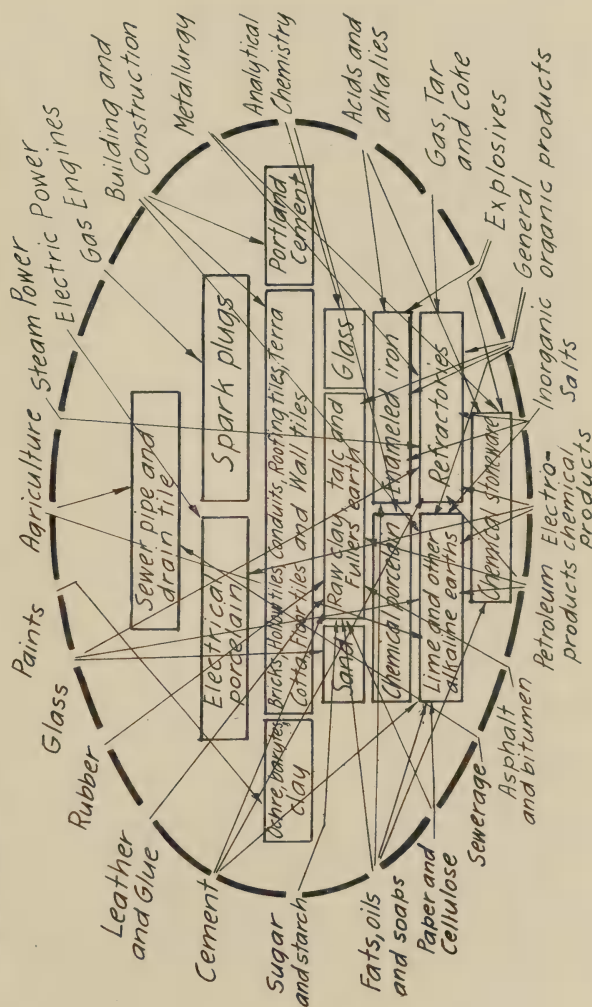 Leather
and Glue
Rubber
Glass
Paints
Agriculture
Steam Power
Electric Power
Gas Engines
Building and
Construction
Metallurgy
Analytical
Chemistry
Acids and
alkalies
Gas, Tar
and Coke
Explosives
General
organic products
Inorganic
Salts
Electro-
chemical
products
Petroleum
products
Asphalt
and bitumen
Sewerage
Paper and
Cellulose
Fats, oils
and soaps
Sugar
and starch
Cement
Sewer pipe and
drain tile
Electrical
porcelain
Spark plugs
Ochre, barytes,
clay
Bricks, Hollow tiles, Conduits, Roofing tiles, Terra
Cotta, Floor tiles and Wall tiles
Portland
Cement
Sand
Raw clay, talc and
Fullers earth
Glass
Chemical porcelain
Enameled iron
Lime and other
alkaline earths
Refractories
Chemical stoneware